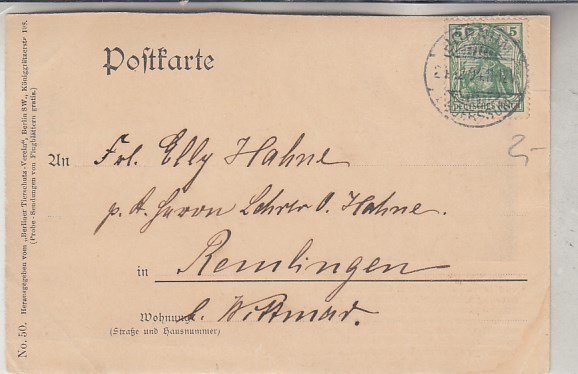 Postkarte
5
DEUTSCHES REICH
An Frl. Elly Hahne
p. A. Herrn Lehrer O. Hahne.
in Remlingen
Wohnung b. Wittmar.
(Straße und Hausnummer)
2,-
No. 50. Herausgegeben vom „Berliner Tierschutz-Verein“, Berlin SW., Königgrätzerstr. 108.
(Probe-Sendungen von Flugblättern gratis.)